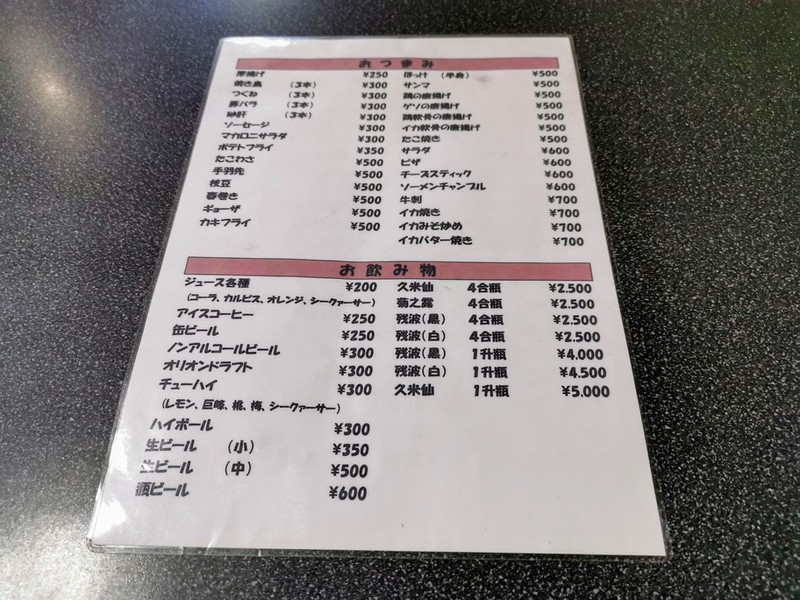 おつまみ
厚揚げ ¥250
焼き鳥 (3本) ¥300
つくね (3本) ¥300
豚バラ (3本) ¥300
砂肝 (3本) ¥300
ソーセージ ¥300
マカロニサラダ ¥300
ポテトフライ ¥350
たこわさ ¥500
手羽先 ¥500
枝豆 ¥500
春巻き ¥500
ギョーザ ¥500
カキフライ ¥500
ほっけ (半身) ¥500
サンマ ¥500
鶏の唐揚げ ¥500
ゲソの唐揚げ ¥500
鶏軟骨の唐揚げ ¥500
イカ軟骨の唐揚げ ¥500
たこ焼き ¥500
サラダ ¥600
ピザ ¥600
チーズスティック ¥600
ソーメンチャンプル ¥600
牛刺 ¥700
イカ焼き ¥700
イカみそ炒め ¥700
イカバター焼き ¥700
お飲み物
ジュース各種 ¥200
(コーラ、カルピス、オレンジ、シークァーサー)
アイスコーヒー ¥250
缶ビール ¥250
ノンアルコールビール ¥300
オリオンドラフト ¥300
チューハイ ¥300
(レモン、巨峰、桃、梅、シークァーサー)
ハイボール ¥300
生ビール (小) ¥350
生ビール (中) ¥500
瓶ビール ¥600
久米仙 4合瓶 ¥2.500
菊之露 4合瓶 ¥2.500
残波(黒) 4合瓶 ¥2.500
残波(白) 4合瓶 ¥2.500
残波(黒) 1升瓶 ¥4.000
残波(白) 1升瓶 ¥4.500
久米仙 1升瓶 ¥5.000